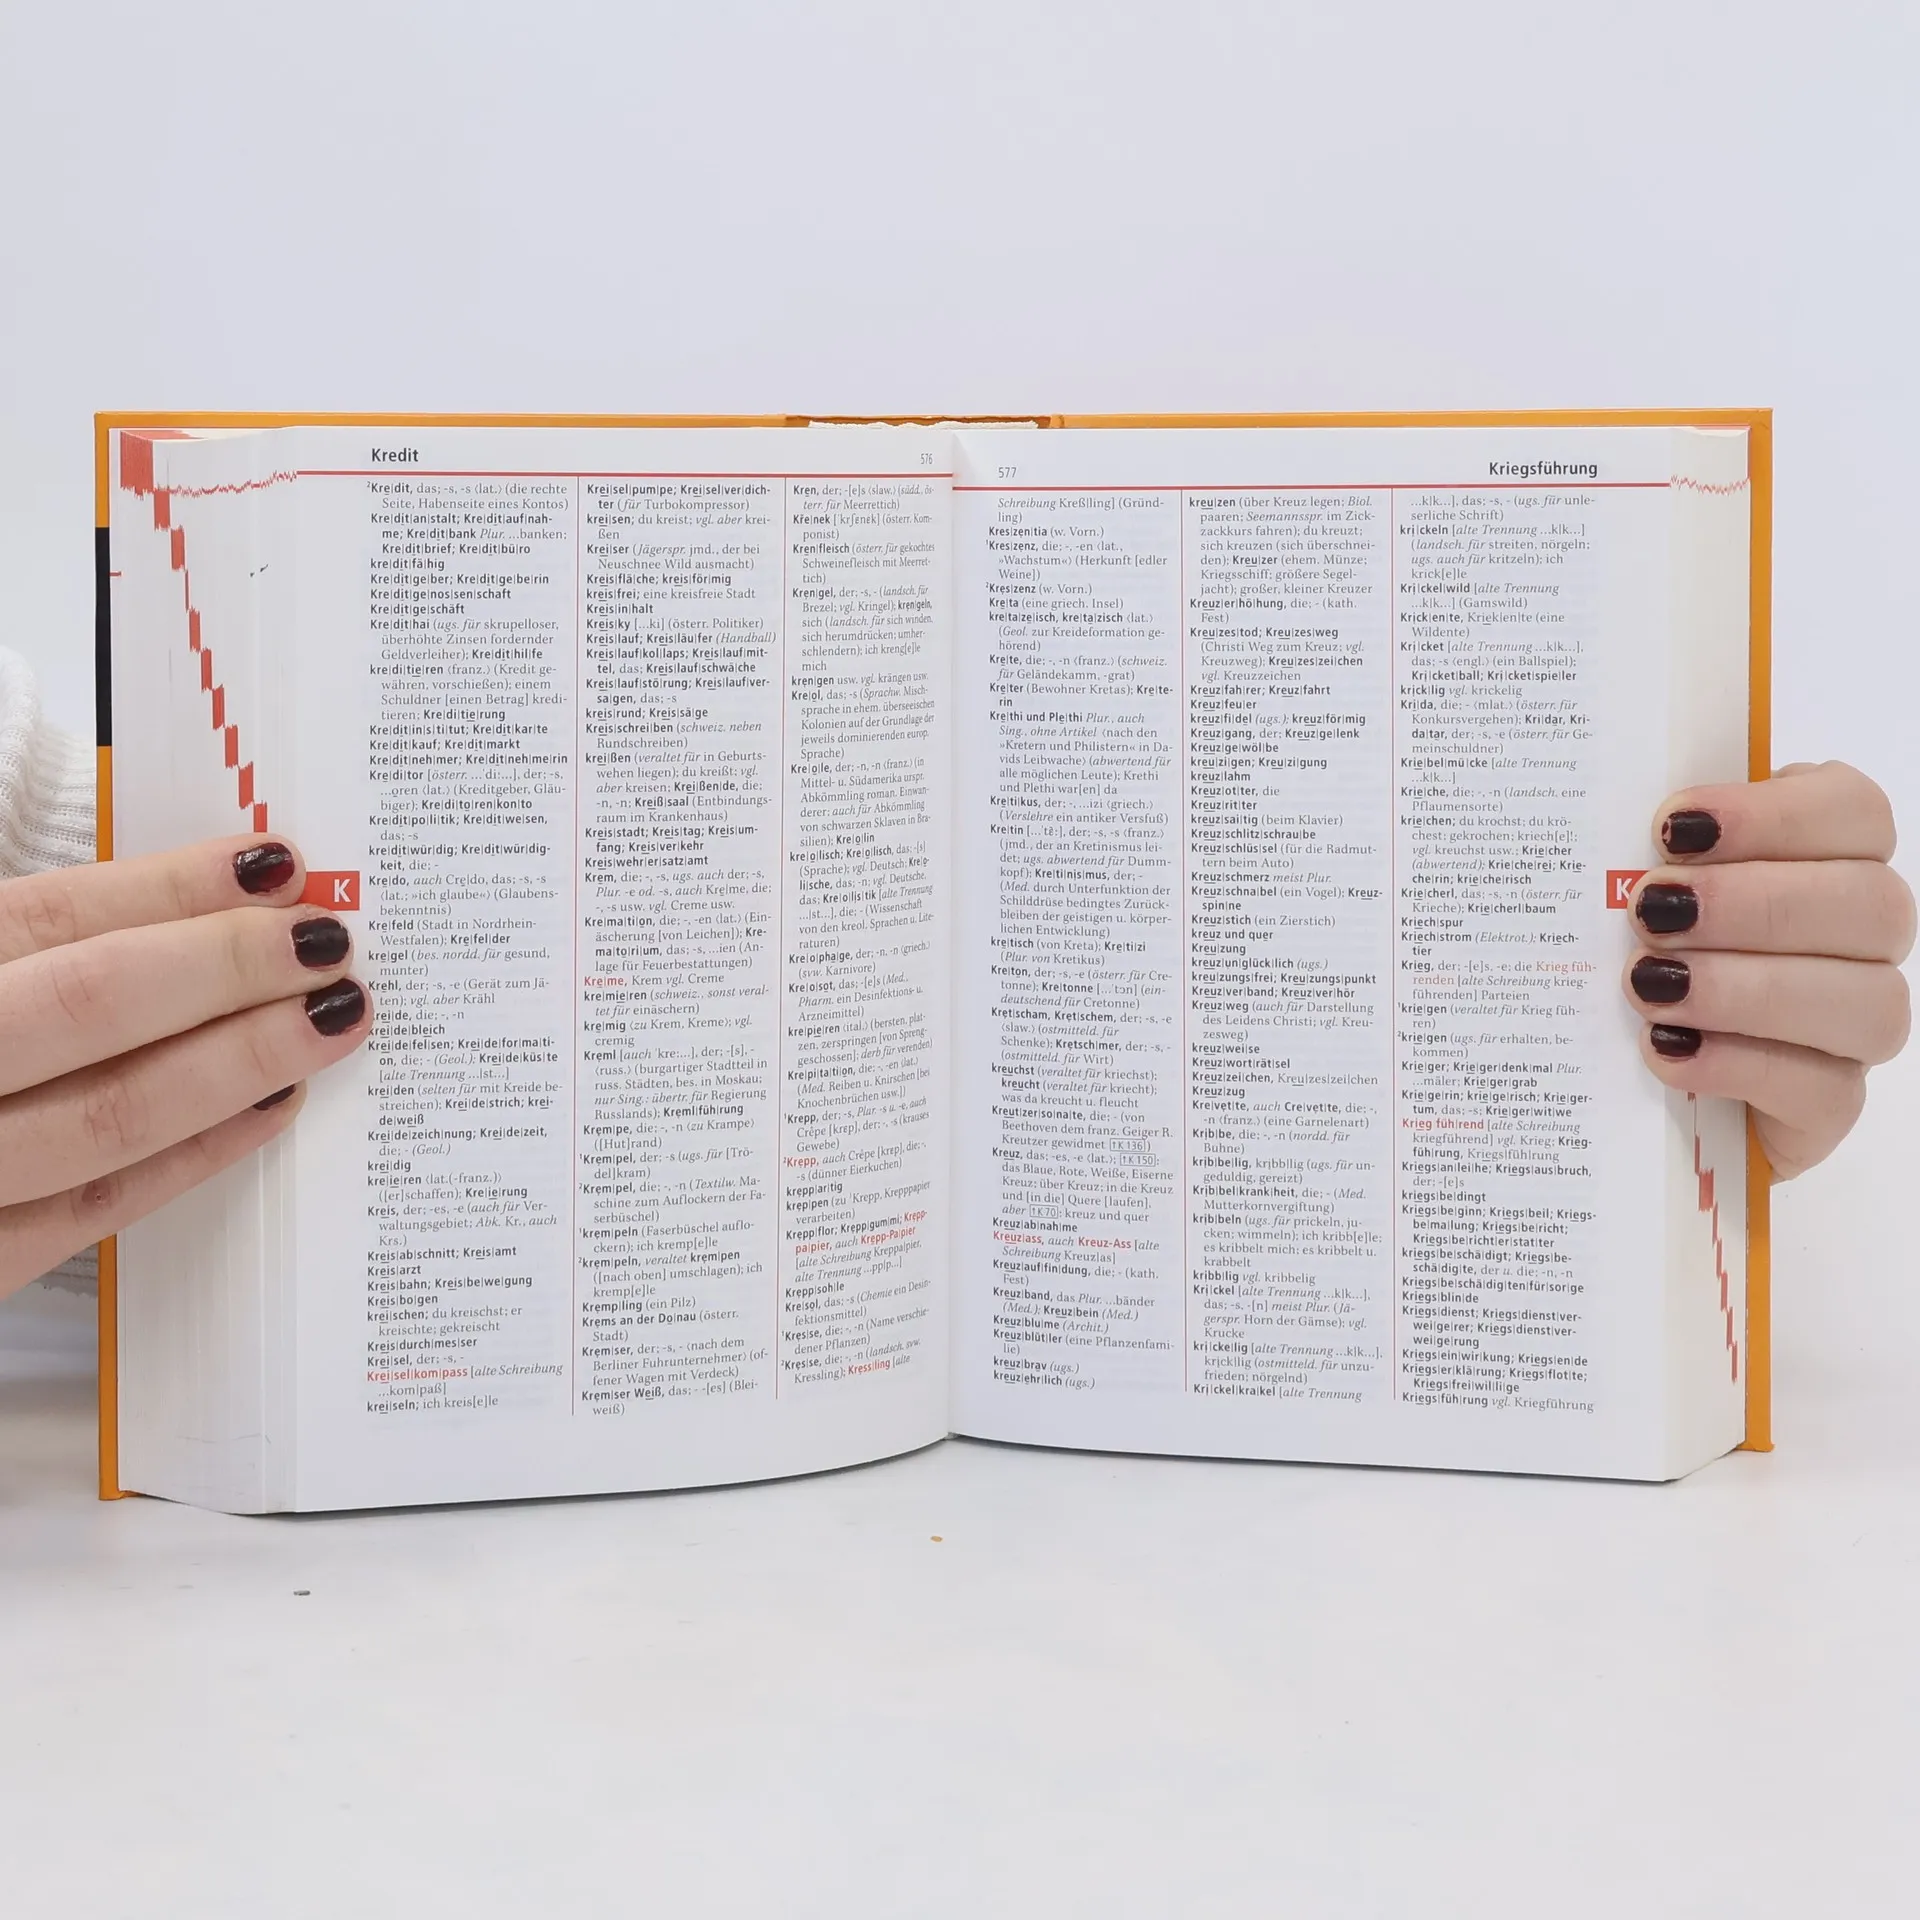 Kredit
576
²Kre|dit, das; -s, -s ⟨lat.⟩ (die rechte
Seite, Habenseite eines Kontos)
Kre|dit|an|stalt; Kre|dit|auf|nah-
me; Kre|dit|bank Plur. ...banken;
Kre|dit|brief; Kre|dit|bü|ro
kre|dit|fä|hig
Kre|dit|ge|ber; Kre|dit|ge|be|rin
Kre|dit|ge|nos|sen|schaft
Kre|dit|ge|schäft
Kre|dit|hai (ugs. für skrupelloser,
überhöhte Zinsen fordernder
Geldverleiher); Kre|dit|hil|fe
kre|di|tie|ren ⟨franz.⟩ (Kredit ge-
währen, vorschießen); einem
Schuldner [einen Betrag] kredi-
tieren; Kre|di|tie|rung
Kre|dit|in|s|ti|tut; Kre|dit|kar|te
Kre|dit|kauf; Kre|dit|markt
Kre|dit|neh|mer; Kre|dit|neh|me|rin
Kre|di|tor [österr. ...ˈdi:...], der; -s,
...oren ⟨lat.⟩ (Kreditgeber, Gläu-
biger); Kre|di|to|ren|kon|to
Kre|dit|po|li|tik; Kre|dit|we|sen,
das; -s
kre|dit|wür|dig; Kre|dit|wür|dig-
keit, die; -
Kre|do, auch Cre|do, das; -s, -s
⟨lat., »ich glaube«⟩ (Glaubens-
bekenntnis)
Kre|feld (Stadt in Nordrhein-
Westfalen); Kre|fel|der
kre|gel (bes. nordd. für gesund,
munter)
Krehl, der; -s, -e (Gerät zum Jä-
ten); vgl. aber Krähl
Krei|de, die; -, -n
krei|de|bleich
Krei|de|fel|sen; Krei|de|for|ma|ti-
on, die; - (Geol.); Krei|de|küs|te
[alte Trennung ...|st...]
krei|den (selten für mit Kreide be-
streichen); Krei|de|strich; krei-
de|weiß
Krei|de|zeich|nung; Krei|de|zeit,
die; - (Geol.)
krei|dig
kre|ie|ren ⟨lat.(-franz.)⟩
([er]schaffen); Kre|ie|rung
Kreis, der; -es, -e (auch für Ver-
waltungsgebiet; Abk. Kr., auch
Krs.)
Kreis|ab|schnitt; Kreis|amt
Kreis|arzt
Kreis|bahn; Kreis|be|we|gung
Kreis|bo|gen
krei|schen; du kreischst; er
kreischte; gekreischt
Kreis|durch|mes|ser
Krei|sel, der; -s, -
Krei|sel|kom|pass [alte Schreibung
...kom|paß]
krei|seln; ich kreis[e]le
Krei|sel|pum|pe; Krei|sel|ver|dich-
ter (für Turbokompressor)
krei|sen; du kreist; vgl. aber krei-
ßen
Krei|ser (Jägerspr. jmd., der bei
Neuschnee Wild ausmacht)
Kreis|flä|che; kreis|för|mig
kreis|frei; eine kreisfreie Stadt
Kreis|in|halt
Kreis|ky [...ki] (österr. Politiker)
Kreis|lauf; Kreis|läu|fer (Handball)
Kreis|lauf|kol|laps; Kreis|lauf|mit-
tel, das; Kreis|lauf|schwä|che
Kreis|lauf|stö|rung; Kreis|lauf|ver-
sa|gen, das; -s
kreis|rund; Kreis|sä|ge
Kreis|schrei|ben (schweiz. neben
Rundschreiben)
krei|ßen (veraltet für in Geburts-
wehen liegen); du kreißt; vgl.
aber kreisen; Krei|ßen|de, die;
-n, -n; Kreiß|saal (Entbindungs-
raum im Krankenhaus)
Kreis|stadt; Kreis|tag; Kreis|um-
fang; Kreis|ver|kehr
Kreis|wehr|er|satz|amt
Krem, die; -, -s, ugs. auch der; -s,
Plur. -e od. -s, auch Kre|me, die;
-, -s usw. vgl. Creme usw.
Kre|ma|ti|on, die; -, -en ⟨lat.⟩ (Ein-
äscherung [von Leichen]); Kre-
ma|to|ri|um, das; -s, ...ien (An-
lage für Feuerbestattungen)
Kre|me, Krem vgl. Creme
kre|mie|ren (schweiz., sonst veral-
tet für einäschern)
kre|mig (zu Krem, Kreme); vgl.
cremig
Kreml [auch ˈkre:...], der; -[s], -
⟨russ.⟩ (burgartiger Stadtteil in
russ. Städten, bes. in Moskau;
nur Sing.: übertr. für Regierung
Russlands); Kreml|füh|rung
Krem|pe, die; -, -n ⟨zu Krampe⟩
([Hut]rand)
¹Krem|pel, der; -s (ugs. für [Trö-
del]kram)
²Krem|pel, die; -, -n (Textilw. Ma-
schine zum Auflockern der Fa-
serbüschel)
¹krem|peln (Faserbüschel auflo-
ckern); ich kremp[e]le
²krem|peln, veraltet krem|pen
([nach oben] umschlagen); ich
kremp[e]le
Kremp|ling (ein Pilz)
Krems an der Do|nau (österr.
Stadt)
Krem|ser, der; -s, - ⟨nach dem
Berliner Fuhrunternehmer⟩ (of-
fener Wagen mit Verdeck)
Krem|ser Weiß, das; - -[es] (Blei-
weiß)
Kren, der; -[e]s ⟨slaw.⟩ (südd., ös-
terr. für Meerrettich)
Kře|nek [ˈkrʃɛnɛk] (österr. Kom-
ponist)
Kren|fleisch (österr. für gekochtes
Schweinefleisch mit Meerret-
tich)
Kren|gel, der; -s, - (landsch. für
Brezel; vgl. Kringel); kren|geln,
sich (landsch. für sich winden,
sich herumdrücken; umher-
schlendern); ich kreng[e]le
mich
kren|gen usw. vgl. krängen usw.
Kre|ol, das; -s (Sprachw. Misch-
sprache in ehem. überseeischen
Kolonien auf der Grundlage der
jeweils dominierenden europ.
Sprache)
Kre|o|le, der; -n, -n ⟨franz.⟩ (in
Mittel- u. Südamerika urspr.
Abkömmling roman. Einwan-
derer; auch für Abkömmling
von schwarzen Sklaven in Bra-
silien); Kre|o|lin
kre|o|lisch; Kre|o|lisch, das; -[s]
(Sprache); vgl. Deutsch; Kre|o-
li|sche, das; -n; vgl. Deutsche,
das; Kre|o|lis|tik [alte Trennung
...|st...], die; - (Wissenschaft
von den kreol. Sprachen u. Lite-
raturen)
Kre|o|pha|ge, der; -n, -n ⟨griech.⟩
(svw. Karnivore)
Kre|o|sot, das; -[e]s (Med.,
Pharm. ein Desinfektions- u.
Arzneimittel)
kre|pie|ren ⟨ital.⟩ (bersten, plat-
zen, zerspringen [von Spreng-
geschossen]; derb für verenden)
Kre|pi|ta|ti|on, die; -, -en ⟨lat.⟩
(Med. Reiben u. Knirschen [bei
Knochenbrüchen usw.])
¹Krepp, der; -s, Plur. -s u. -e, auch
Crêpe [krɛp], der; -, -s (krauses
Gewebe)
²Krepp, auch Crêpe [krɛp], die; -,
-s (dünner Eierkuchen)
krepp|ar|tig
krep|pen (zu ¹Krepp, Krepppapier
verarbeiten)
Krepp|flor; Krepp|gum|mi; Krepp-
pa|pier, auch Krepp-Pa|pier
[alte Schreibung Kreppa|pier,
alte Trennung ...pp|p...]
Krepp|soh|le
Kre|sol, das; -s (Chemie ein Desin-
fektionsmittel)
¹Kres|se, die; -, -n (Name verschie-
dener Pflanzen)
²Kres|se, die; -, -n (landsch. svw.
Kressling); Kress|ling [alte
K
577
Kriegsführung
Schreibung Kreß|ling] (Gründ-
ling)
Kres|zen|tia (w. Vorn.)
¹Kres|zenz, die; -, -en ⟨lat.,
»Wachstum«⟩ (Herkunft [edler
Weine])
²Kres|zenz (w. Vorn.)
Kre|ta (eine griech. Insel)
kre|ta|ze|isch, kre|ta|zisch ⟨lat.⟩
(Geol. zur Kreideformation ge-
hörend)
Kre|te, die; -, -n ⟨franz.⟩ (schweiz.
für Geländekamm, -grat)
Kre|ter (Bewohner Kretas); Kre|te-
rin
Kre|thi und Ple|thi Plur., auch
Sing., ohne Artikel ⟨nach den
»Kretern und Philistern« in Da-
vids Leibwache⟩ (abwertend für
alle möglichen Leute); Krethi
und Plethi war[en] da
Kre|ti|kus, der; -, ...izi ⟨griech.⟩
(Verslehre ein antiker Versfuß)
Kre|tin [...ˈtɛ̃:], der; -s, -s ⟨franz.⟩
(jmd., der an Kretinismus lei-
det; ugs. abwertend für Dumm-
kopf); Kre|ti|nis|mus, der; -
(Med. durch Unterfunktion der
Schilddrüse bedingtes Zurück-
bleiben der geistigen u. körper-
lichen Entwicklung)
kre|tisch (von Kreta); Kre|ti|zi
(Plur. von Kretikus)
Kre|ton, der; -s, -e (österr. für Cre-
tonne); Kre|tonne [...ˈtɔn] (ein-
deutschend für Cretonne)
Kret|scham, Kret|schem, der; -s, -e
⟨slaw.⟩ (ostmitteld. für
Schenke); Kretsch|mer, der; -s, -
(ostmitteld. für Wirt)
kreuchst (veraltet für kriechst);
kreucht (veraltet für kriecht);
was da kreucht u. fleucht
Kreut|zer|so|na|te, die; - (von
Beethoven dem franz. Geiger R.
Kreutzer gewidmet ↑K 136)
Kreuz, das; -es, -e ⟨lat.⟩; ↑K 150:
das Blaue, Rote, Weiße, Eiserne
Kreuz; über Kreuz; in die Kreuz
und [in die] Quere [laufen],
aber ↑K 70: kreuz und quer
Kreuz|ab|nah|me
Kreuz|ass, auch Kreuz-Ass [alte
Schreibung Kreuz|as]
Kreuz|auf|fin|dung, die; - (kath.
Fest)
Kreuz|band, das Plur. ...bänder
(Med.); Kreuz|bein (Med.)
Kreuz|blu|me (Archit.)
Kreuz|blüt|ler (eine Pflanzenfami-
lie)
kreuz|brav (ugs.)
kreuz|ehr|lich (ugs.)
kreu|zen (über Kreuz legen; Biol.
paaren; Seemannsspr. im Zick-
zackkurs fahren); du kreuzt;
sich kreuzen (sich überschnei-
den); Kreu|zer (ehem. Münze;
Kriegsschiff; größere Segel-
jacht); großer, kleiner Kreuzer
Kreuz|er|hö|hung, die; - (kath.
Fest)
Kreu|zes|tod; Kreu|zes|weg
(Christi Weg zum Kreuz; vgl.
Kreuzweg); Kreu|zes|zei|chen
vgl. Kreuzzeichen
Kreuz|fah|rer; Kreuz|fahrt
Kreuz|feu|er
kreuz|fi|del (ugs.); kreuz|för|mig
Kreuz|gang, der; Kreuz|ge|lenk
Kreuz|ge|wöl|be
kreu|zi|gen; Kreu|zi|gung
kreuz|lahm
Kreuz|ot|ter, die
Kreuz|rit|ter
kreuz|sai|tig (beim Klavier)
Kreuz|schlitz|schrau|be
Kreuz|schlüs|sel (für die Radmut-
tern beim Auto)
Kreuz|schmerz meist Plur.
Kreuz|schna|bel (ein Vogel); Kreuz-
spin|ne
Kreuz|stich (ein Zierstich)
kreuz und quer
Kreu|zung
kreuz|un|glück|lich (ugs.)
kreu|zungs|frei; Kreu|zungs|punkt
Kreuz|ver|band; Kreuz|ver|hör
Kreuz|weg (auch für Darstellung
des Leidens Christi; vgl. Kreu-
zesweg)
kreuz|wei|se
Kreuz|wort|rät|sel
Kreuz|zei|chen, Kreu|zes|zei|chen
Kreuz|zug
Kre|vet|te, auch Cre|vet|te, die; -,
-n ⟨franz.⟩ (eine Garnelenart)
Krib|be, die; -, -n (nordd. für
Buhne)
krib|be|lig, kribb|lig (ugs. für un-
geduldig, gereizt)
Krib|bel|krank|heit, die; - (Med.
Mutterkornvergiftung)
krib|beln (ugs. für prickeln, ju-
cken; wimmeln); ich kribb[e]le;
es kribbelt mich; es kribbelt u.
krabbelt
kribb|lig vgl. kribbelig
Kri|ckel [alte Trennung ...k|k...],
das; -s, -[n] meist Plur. (Jä-
gerspr. Horn der Gämse); vgl.
Krucke
kri|cke|lig [alte Trennung ...k|k...],
krick|lig (ostmitteld. für unzu-
frieden; nörgelnd)
Kri|ckel|kra|kel [alte Trennung
...k|k...], das; -s, - (ugs. für unle-
serliche Schrift)
kri|ckeln [alte Trennung ...k|k...]
(landsch. für streiten, nörgeln;
ugs. auch für kritzeln); ich
krick[e]le
Kri|ckel|wild [alte Trennung
...k|k...] (Gamswild)
Krick|en|te, Kriek|en|te (eine
Wildente)
Kri|cket [alte Trennung ...k|k...],
das; -s ⟨engl.⟩ (ein Ballspiel);
Kri|cket|ball; Kri|cket|spie|ler
krick|lig vgl. krickelig
Kri|da, die; - ⟨mlat.⟩ (österr. für
Konkursvergehen); Kri|dar, Kri-
da|tar, der; -s, -e (österr. für Ge-
meinschuldner)
Krie|bel|mü|cke [alte Trennung
...k|k...]
Krie|che, die; -, -n (landsch. eine
Pflaumensorte)
krie|chen; du krochst; du krö-
chest; gekrochen; kriech[e]!;
vgl. kreuchst usw.; Krie|cher
(abwertend); Krie|che|rei; Krie-
che|rin; krie|che|risch
Krie|cherl, das; -s, -n (österr. für
Krieche); Krie|cherl|baum
Kriech|spur
Kriech|strom (Elektrot.); Kriech-
tier
Krieg, der; -[e]s, -e; die Krieg füh-
renden [alte Schreibung krieg-
führenden] Parteien
¹krie|gen (veraltet für Krieg füh-
ren)
²krie|gen (ugs. für erhalten, be-
kommen)
Krie|ger; Krie|ger|denk|mal Plur.
...mäler; Krie|ger|grab
Krie|ge|rin; krie|ge|risch; Krie|ger-
tum, das; -s; Krie|ger|wit|we
Krieg füh|rend [alte Schreibung
kriegführend] vgl. Krieg; Krieg-
füh|rung, Kriegs|füh|rung
Kriegs|an|lei|he; Kriegs|aus|bruch,
der; -[e]s
kriegs|be|dingt
Kriegs|be|ginn; Kriegs|beil; Kriegs-
be|ma|lung; Kriegs|be|richt;
Kriegs|be|richt|er|stat|ter
kriegs|be|schä|digt; Kriegs|be-
schä|dig|te, der u. die; -n, -n
Kriegs|be|schä|dig|ten|für|sor|ge
Kriegs|blin|de
Kriegs|dienst; Kriegs|dienst|ver-
wei|ge|rer; Kriegs|dienst|ver-
wei|ge|rung
Kriegs|ein|wir|kung; Kriegs|en|de
Kriegs|er|klä|rung; Kriegs|flot|te;
Kriegs|frei|wil|li|ge
Kriegs|füh|rung vgl. Kriegführung
K